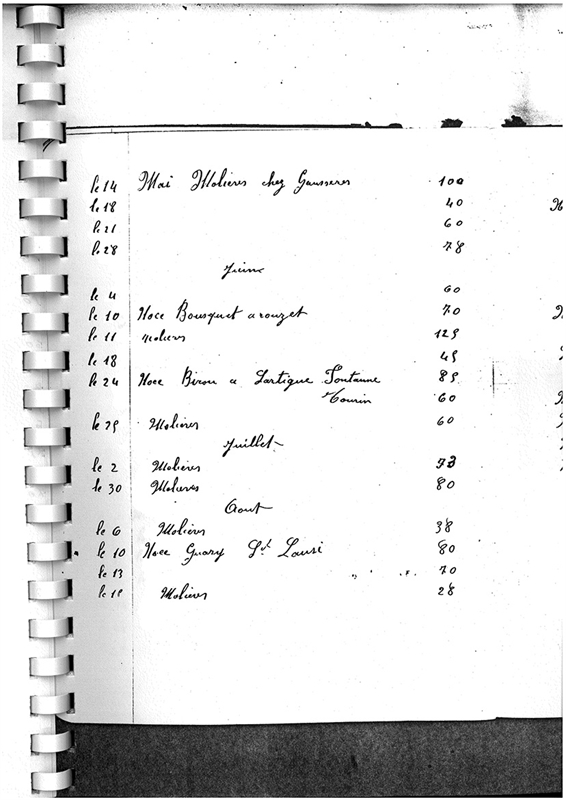 le 14 Mai Molières chez Gausseres 100
le 18 40
le 21 60
le 28 78
Juin
le 4 60
le 10 Noce Bousquet a rouzet 70
le 11 Molieres 125
le 18 45
le 24 Noce Birou a Lartigue Fontanne 85
60
le 25 Molieres 60
Juillet
le 2 Molieres 73
le 30 Molieres 80
Aout
le 6 Molières 38
le 10 Noce Guary St Lausi 80
le 13 " " 70
le Molières 28